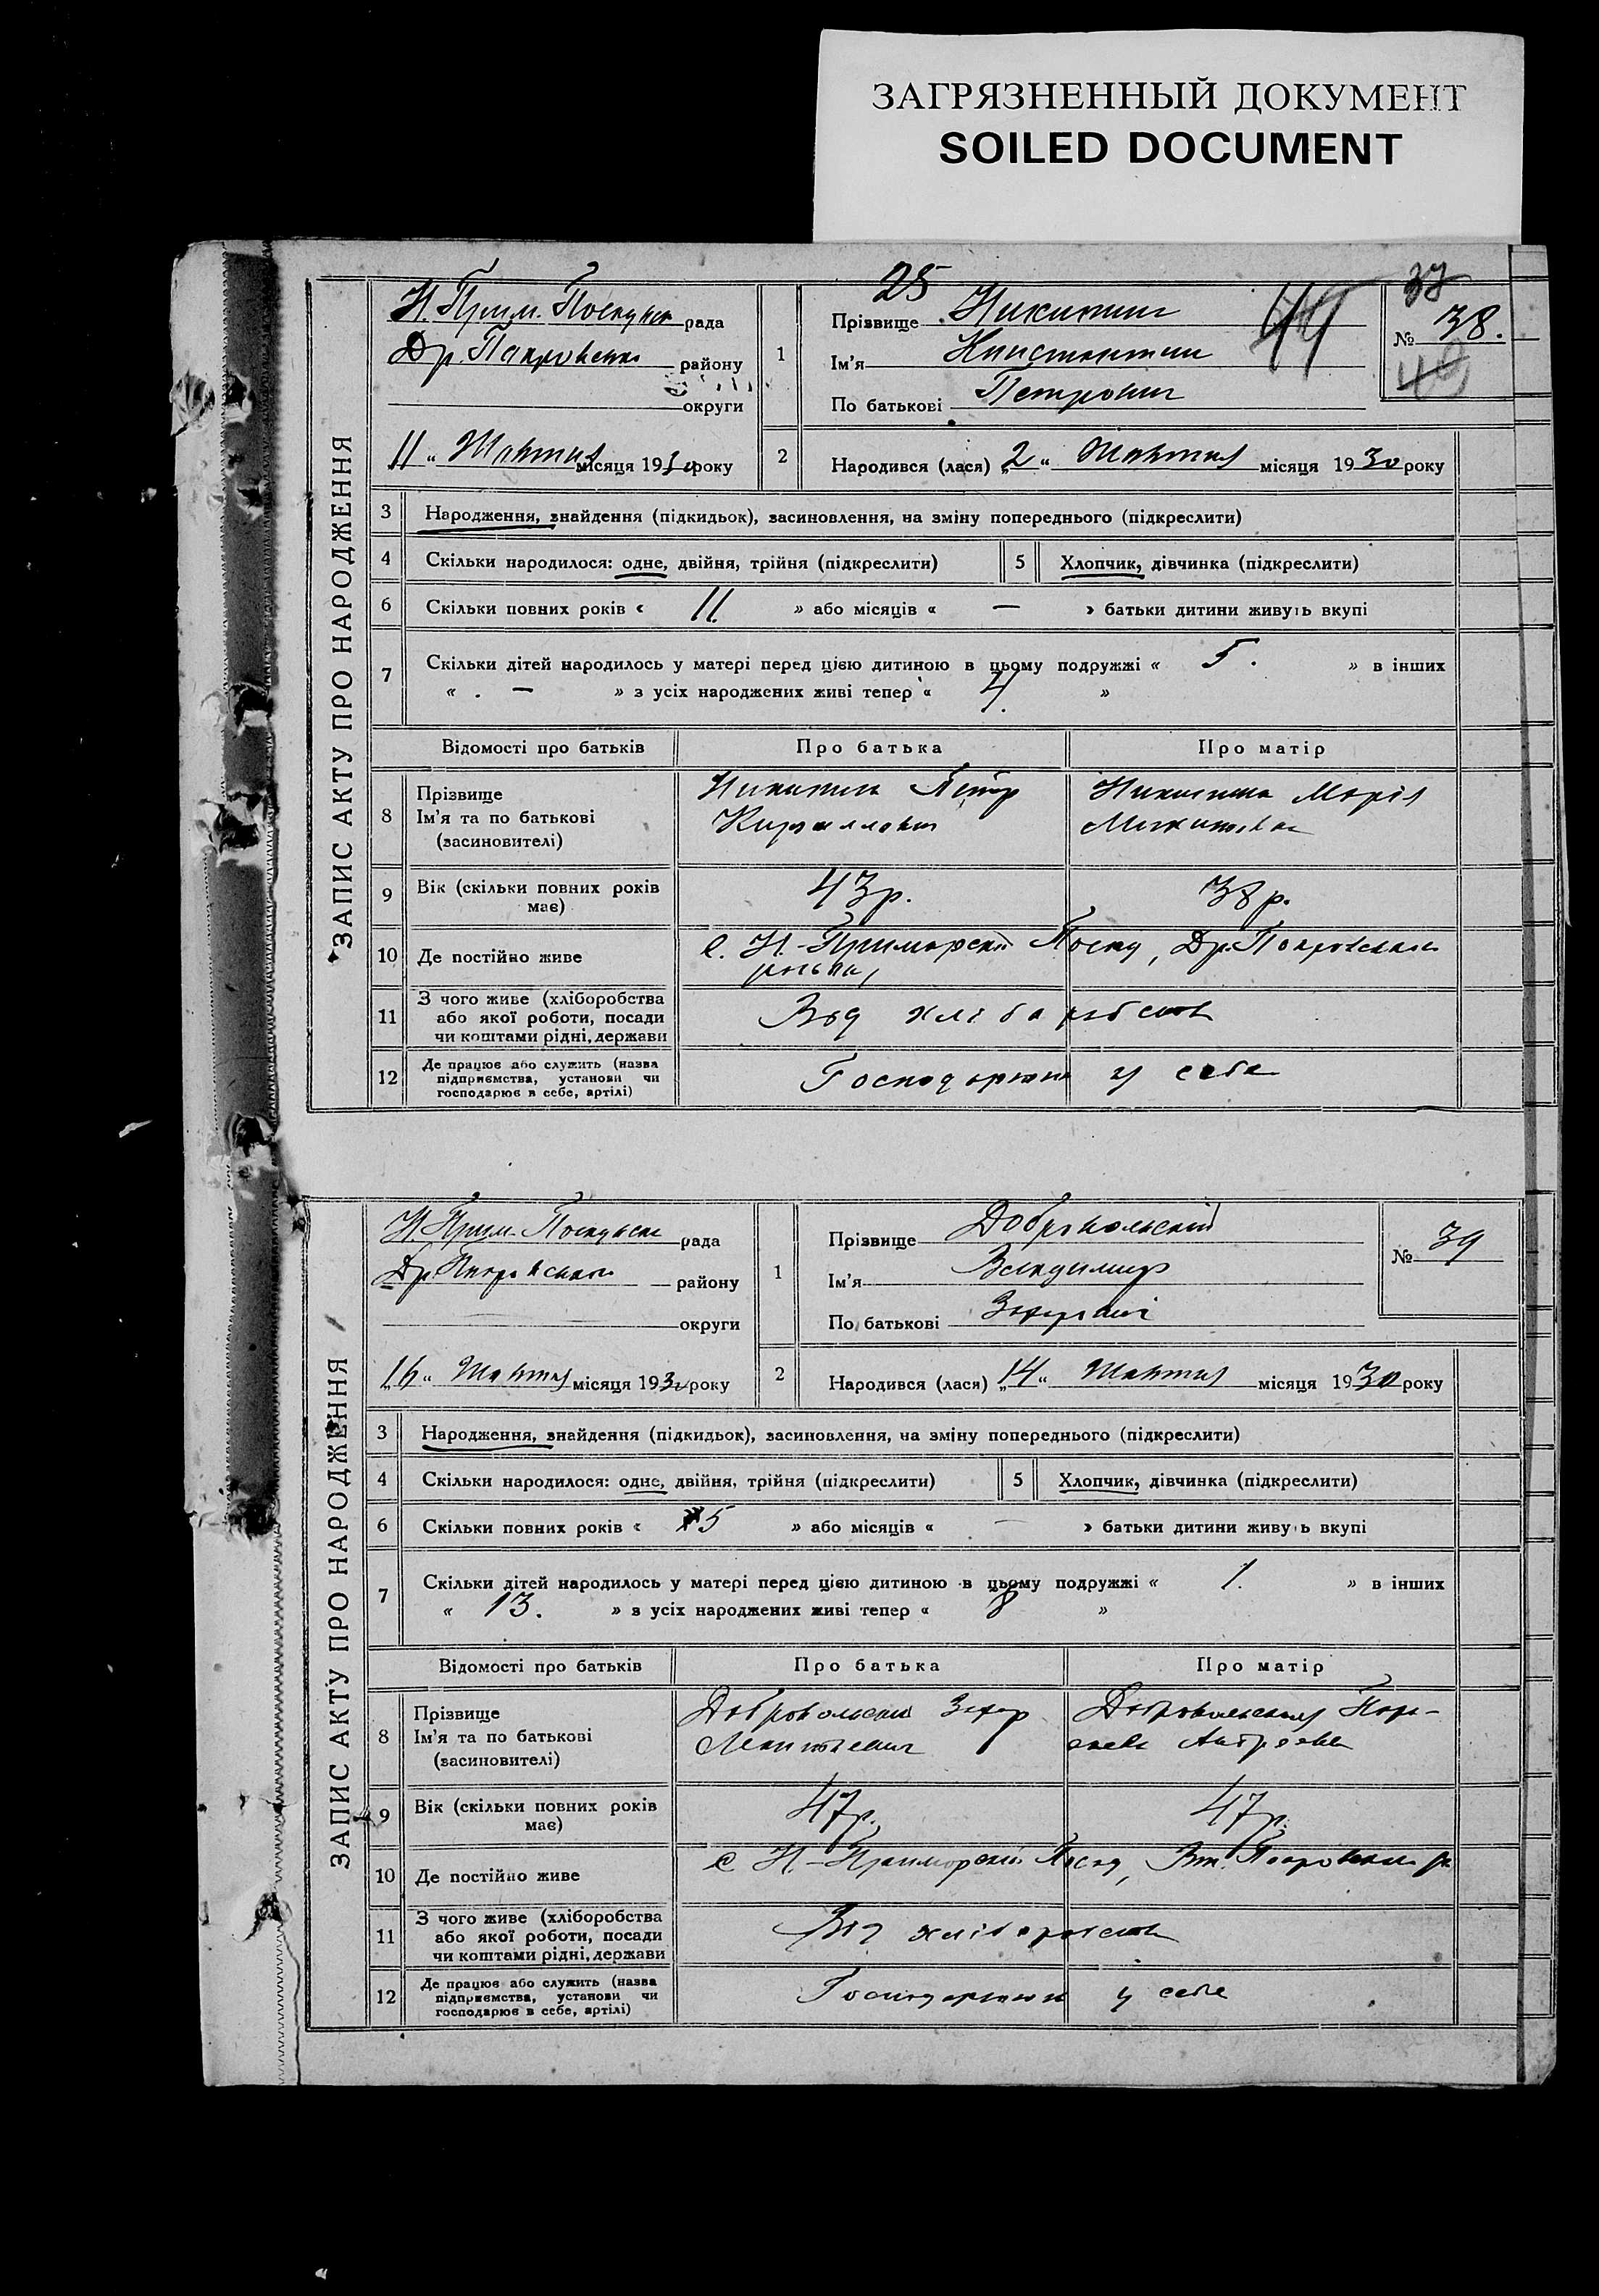 ЗАГРЯЗНЕННЫЙ ДОКУМЕНТ
SOILED DOCUMENT
25
37
ЗАПИС АКТУ ПРО НАРОДЖЕННЯ
Н. Прим. Посадська рада
Др. Покровського району
округи
11 „ Жовтня місяця 1930 року
1
Прізвище Никитин
Ім'я Константин
По батькові Петрович
44
№ 38.
49
2
Народився (лася) „2“ Жовтня місяця 1930 року
3 Народження, знайдення (підкидьок), засиновлення, на зміну попереднього (підкреслити)
4 Скільки народилося: одне, двійня, трійня (підкреслити) 5 Хлопчик, дівчинка (підкреслити)
6 Скільки повних років « 11 » або місяців « — » батьки дитини живуть вкупі
7 Скільки дітей народилось у матері перед цією дитиною в цьому подружжі « 5. » в інших
« . — » з усіх народжених живі тепер « 4. »
Відомості про батьків Про батька Про матір
8 Прізвище Никитин Петр Никитина Марія
Ім'я та по батькові Кириллович
(засиновителі)
9 Вік (скільки повних років має) 43 р. 38 р.
10 Де постійно живе с. Н.-Приморский Посад, Др. Покровського
району
11 З чого живе (хліборобства або якої роботи, посади чи коштами рідні, держави Від хліборобства
12 Де працює або служить (назва підприємства, установи чи господарює в себе, артілі) Господарюють у себе
ЗАПИС АКТУ ПРО НАРОДЖЕННЯ
Н. Прим. Посадська рада
Др. Покровського району
округи
„16“ Жовтня місяця 1930 року
1
Прізвище Добровольский
Ім'я Владимир
По батькові Захарович
№ 39
2
Народився (лася) „14“ Жовтня місяця 1930 року
3 Народження, знайдення (підкидьок), засиновлення, на зміну попереднього (підкреслити)
4 Скільки народилося: одне, двійня, трійня (підкреслити) 5 Хлопчик, дівчинка (підкреслити)
6 Скільки повних років « 5 » або місяців « — » батьки дитини живуть вкупі
7 Скільки дітей народилось у матері перед цією дитиною в цьому подружжі « 1. » в інших
« 13. » з усіх народжених живі тепер « 8 »
Відомості про батьків Про батька Про матір
8 Прізвище Добровольский Захар Добровольская Пара-
Ім'я та по батькові скева Андреевна
(засиновителі)
9 Вік (скільки повних років має) 47 р. 47 р.
10 Де постійно живе с Н-Приморский Посад, Вт. Покровськ. р.
11 З чого живе (хліборобства або якої роботи, посади чи коштами рідні, держави Від хліборобства
12 Де працює або служить (назва підприємства, установи чи господарює в себе, артілі) Господарюють у себе